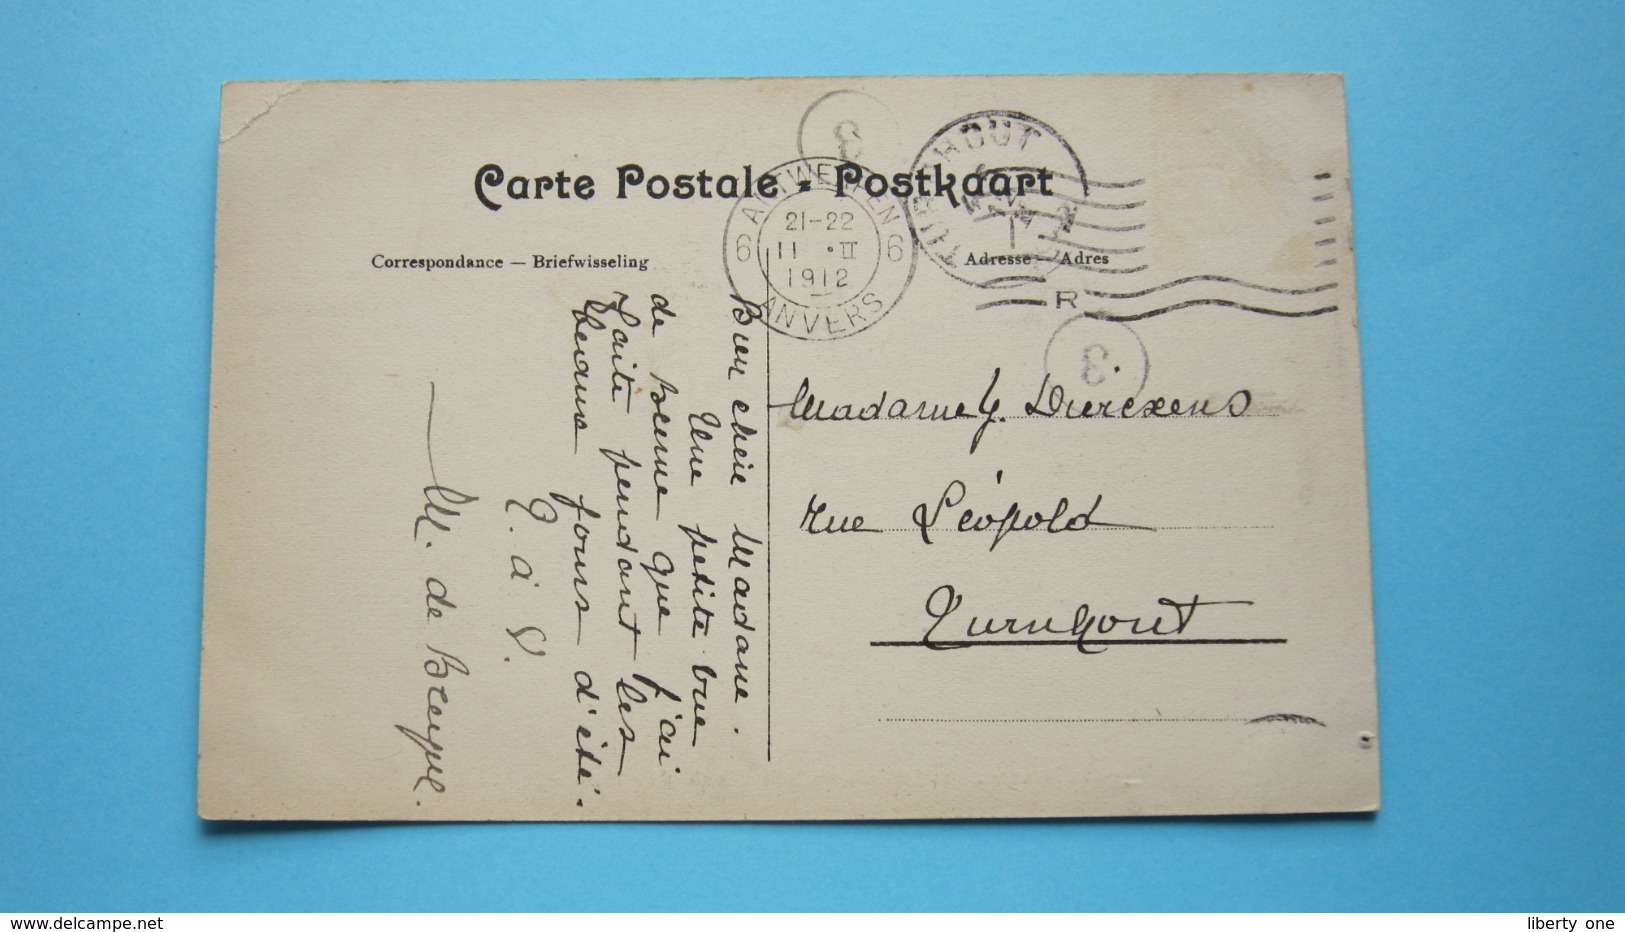 Carte Postale - Postkaart
Correspondance — Briefwisseling
Adresse — Adres
3
ANTWERPEN
6 21-22 6
11 • II
1912
ANVERS
TURNHOUT
R
3
Bien chère Madame.
Une petite vue
de Berne que j'ai
faite pendant les
beaux jours d'été.
T. à V.
M. de
Madame G. Dierckxens
rue Léopold
Turnhout
www.delcampe.net
liberty_one